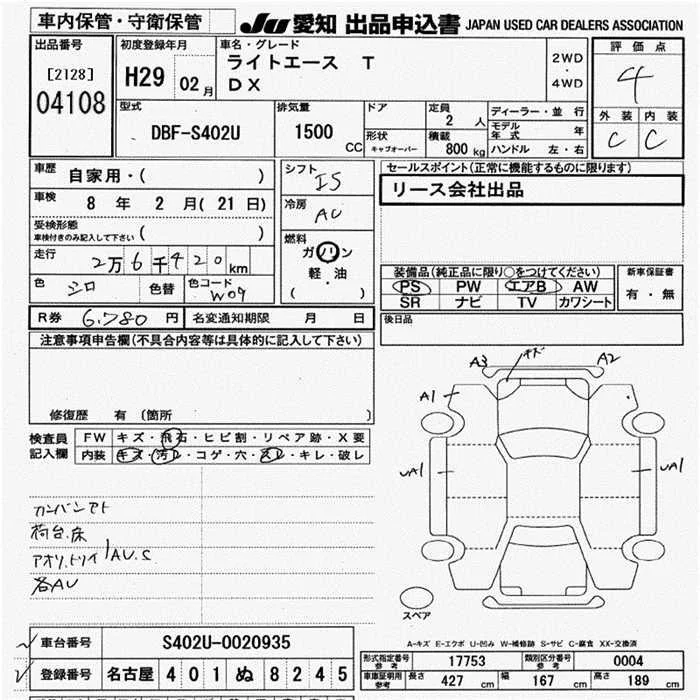 車内保管・守衛保管
JU 愛知 出品申込書 JAPAN USED CAR DEALERS ASSOCIATION
出品番号
[2128]
04108
初度登録年月
H29 02月
車名・グレード
ライトエース T
DX
2WD
・
4WD
評価点
4
外装 内装
C C
型式
DBF-S402U
排気量
1500 CC
ドア
形状 キャブオーバー
定員 2 人
積載 800 kg
ディーラー・並行
モデル年式 年
ハンドル 左・右
車歴 自家用・( )
車検 8 年 2 月( 21 日)
受検形態
車検付きのみ記入して下さい ( )
走行 2万6千420km
色 シロ 色替 色コード W09
シフト IS
冷房 AC
燃料
ガソリン
軽・油
( )
セールスポイント(正常に機能するものに限ります)
リース会社出品
装備品(純正品に限り○をつけてください)
PS PW エアB AW
SR ナビ TV カワシート
新車保証書
有・無
R券 6,780 円 名変通知期限 月 日
後日品
注意事項申告欄(不具合内容等は具体的に記入して下さい)
修復歴 有 (箇所 )
検査員記入欄
FW キズ・飛石・ヒビ割・リペア跡・X要
内装 キズ・汚レ・コゲ・穴・スレ・キレ・破レ
カンバンアト
荷台.床
アオリ.トリイ AU.S
各AU
A3 キズ A2
A1
UA1 UA1
スペア
A-キズ E-エクボ U-凹み W-補修跡 S-サビ C-腐食 XX-交換済
車台番号 S402U-0020935
登録番号 名古屋 401 ぬ 8245
形式指定番号 参考 17753 類別区分番号 参考 0004
車庫証明用 参考 長さ 427 cm 幅 167 cm 高さ 189 cm